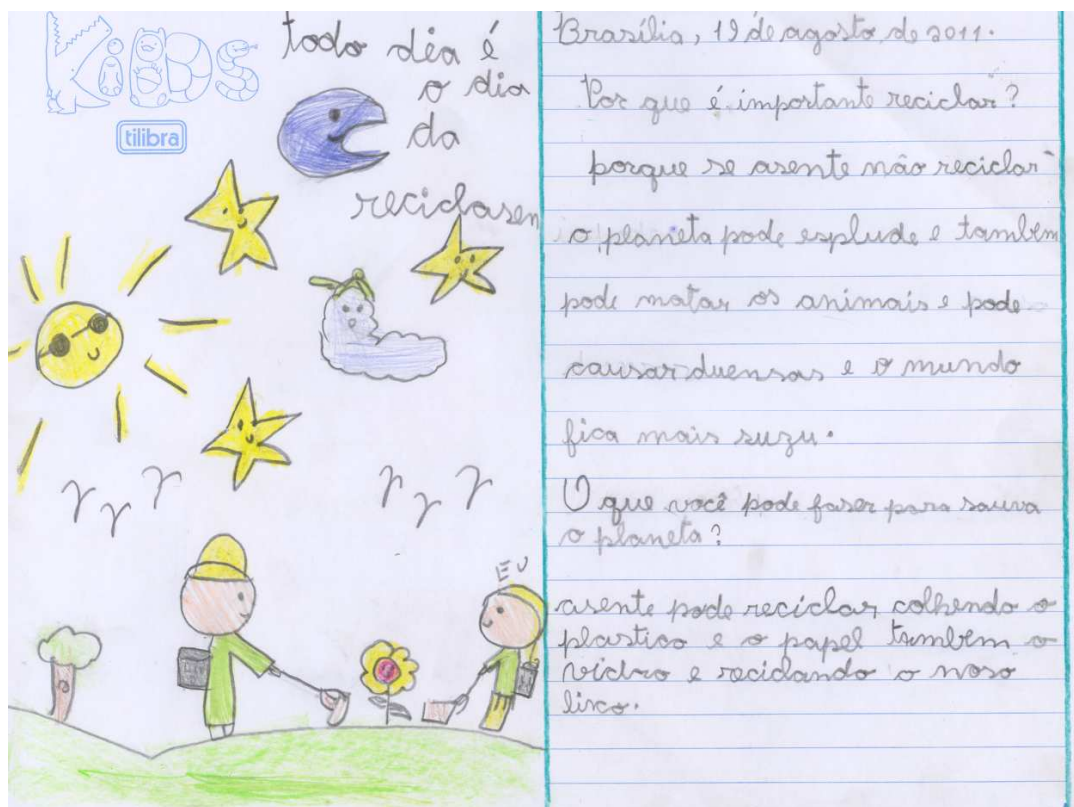 KiDS
tilibra
todo déa é
o dia
da
reciclasen
EU
Brasília, 19 de agosto de 2011.
Por que é importante reciclar?
porque se asente não reciclar
o planeta pode esplude e também
pode matar os animais e pode
causar duensas e o mundo
fica mais suzu.
O que você pode faser para sauva
o planeta?
asente pode reciclar, colhendo o
plastico e o papel também o
vidro e recidando o noso
lixo.